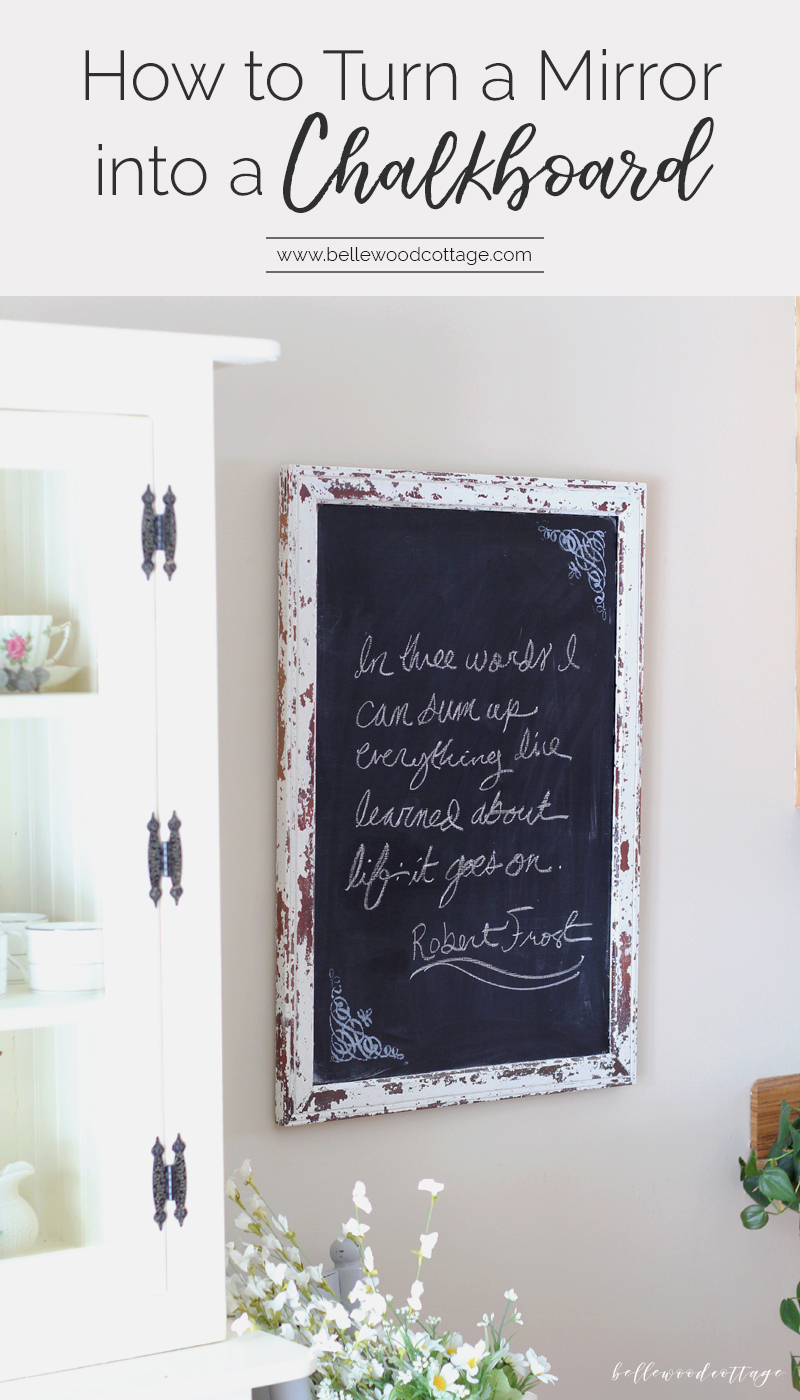 How to Turn a Mirror
into a Chalkboard
www.bellewoodcottage.com
In three words I
can sum up
everything I've
learned about
life-it goes on.
Robert Frost
bellewoodcottage